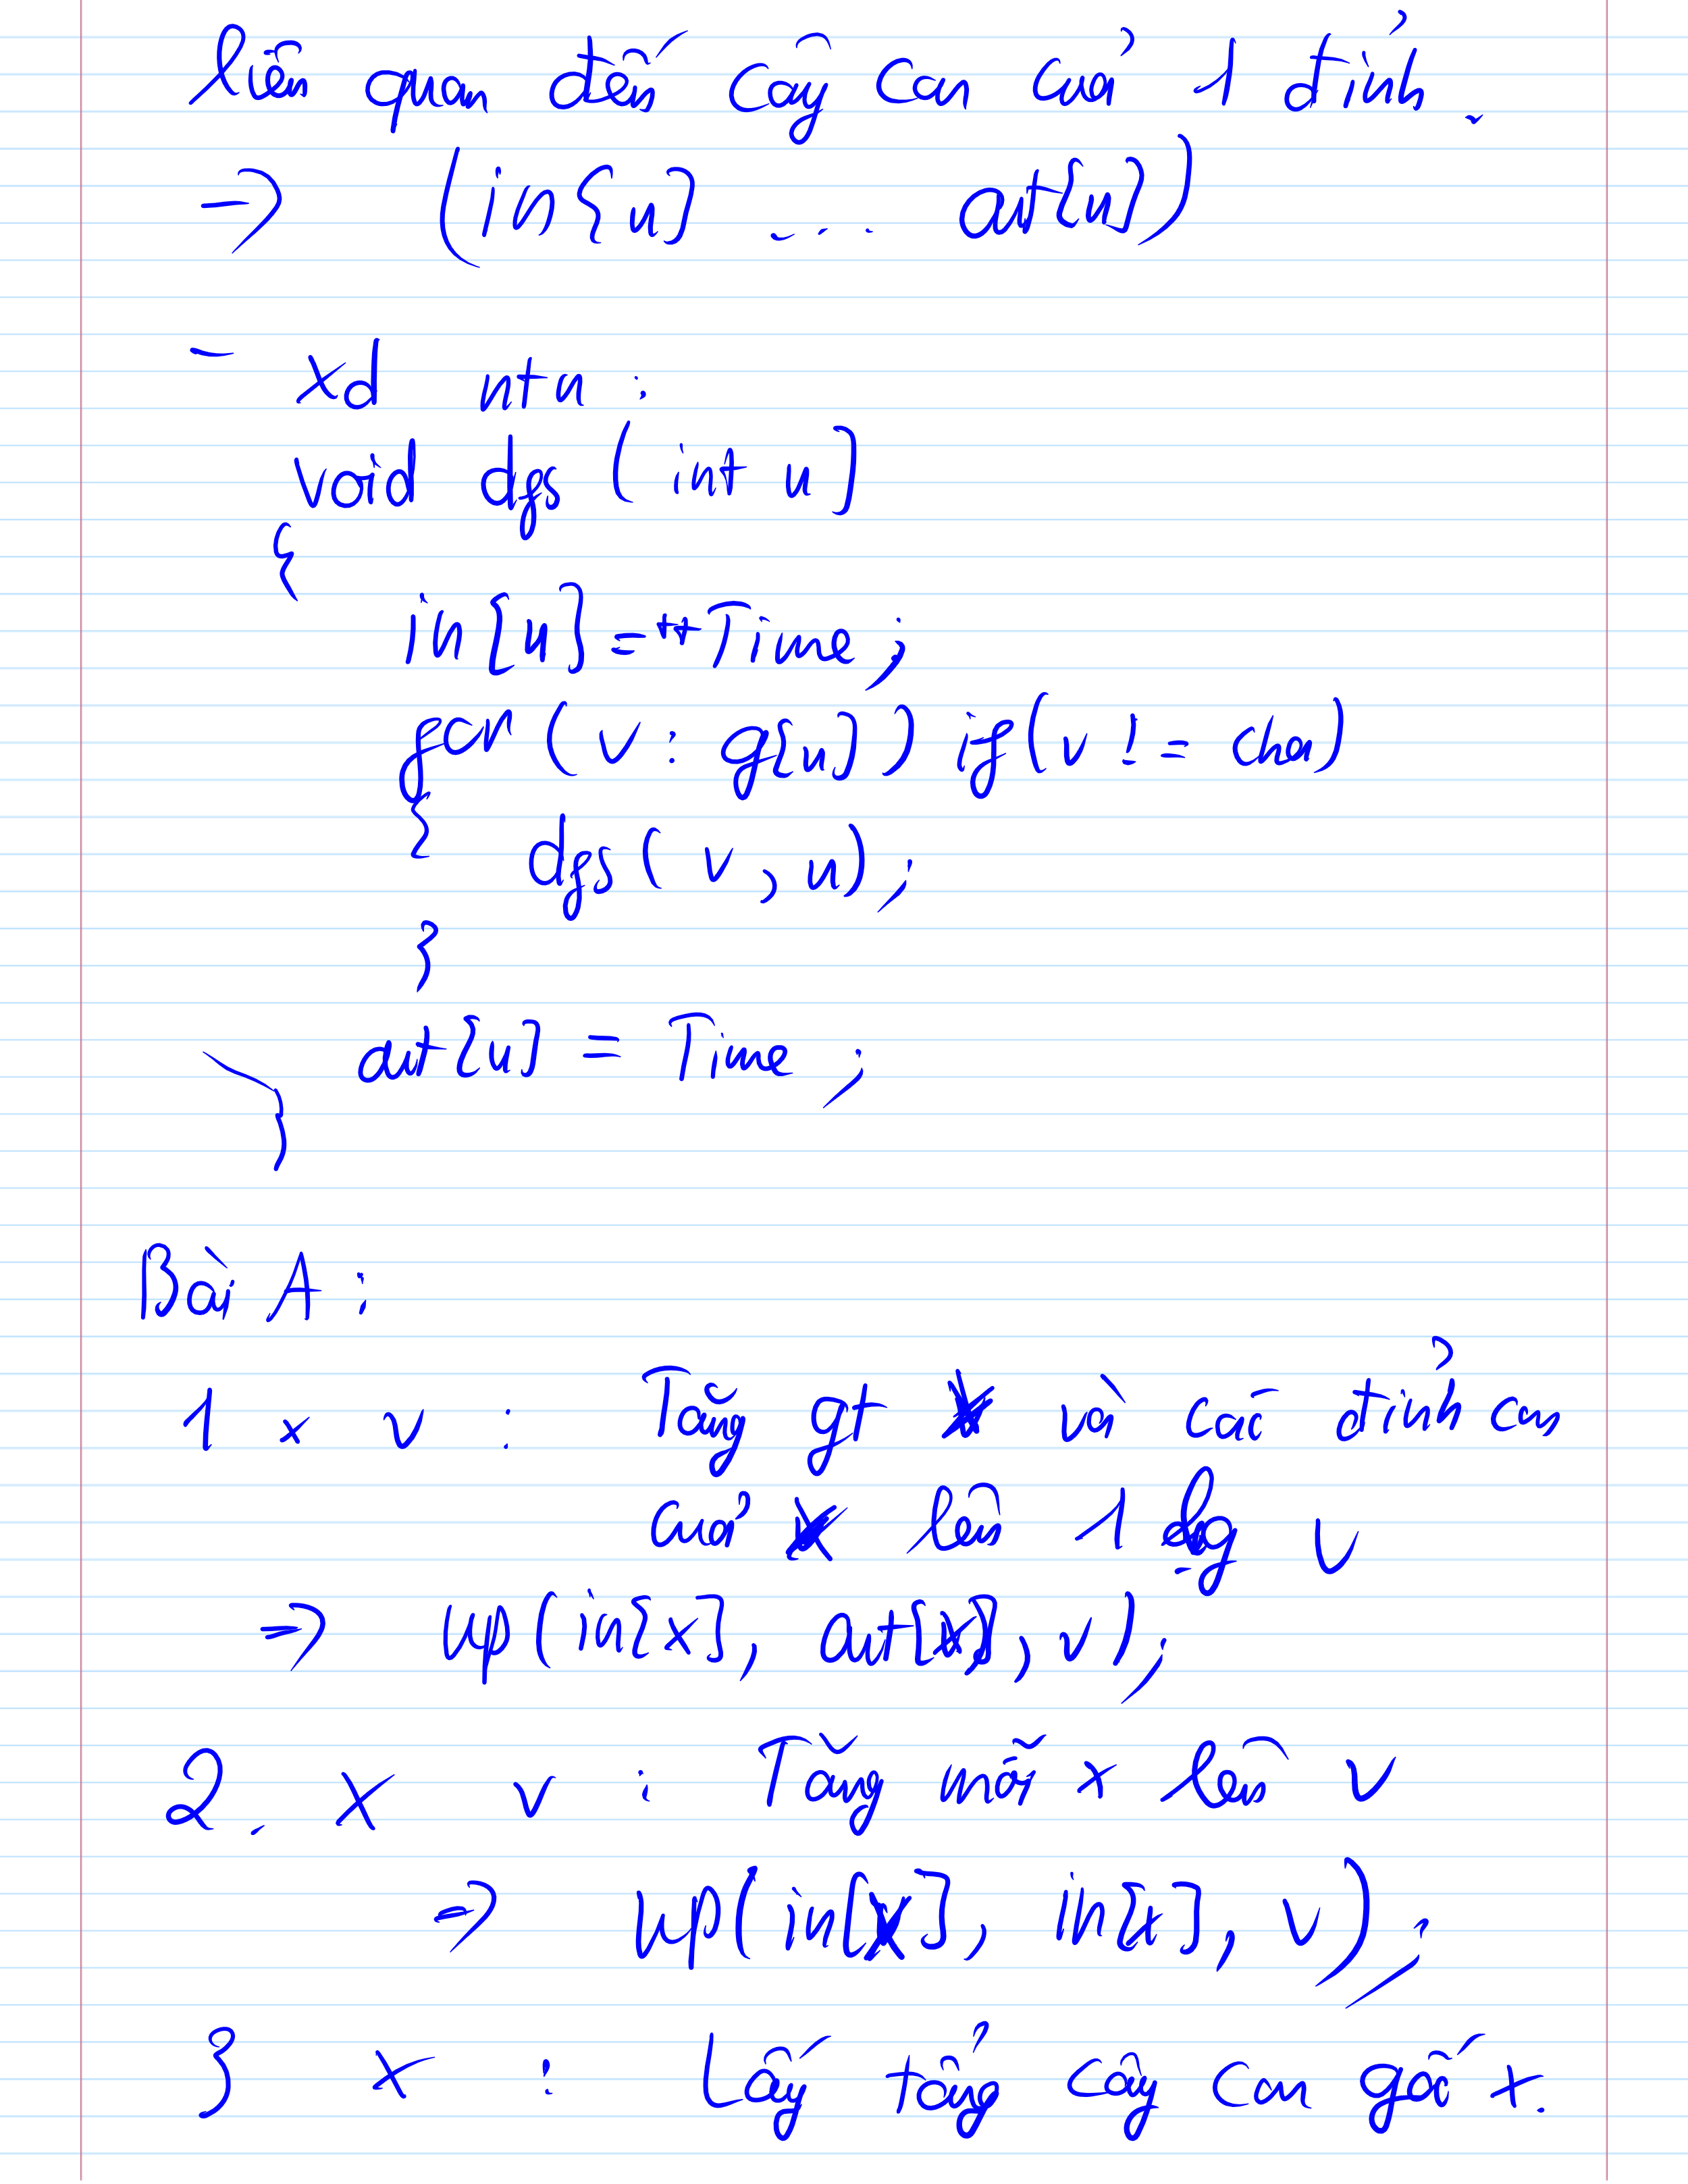 liên quan đến cây con của 1 đỉnh.
=> (in[u] .... out[u])
- xd ntn :
void dfs (int u)
{
in[u] = ++Time;
for (v : g[u]) if (v != cha)
{
dfs(v, u);
}
out[u] = Time;
}
Bài A :
1 x v : Tăng gt x và các đỉnh con
của x lên 1 lg v
=> up(in[x], out[x], v);
2. x v : Tăng mỗi x lên v
=> up(in[x], in[x], v);
3 x : Lấy tổng cây con gốc x.